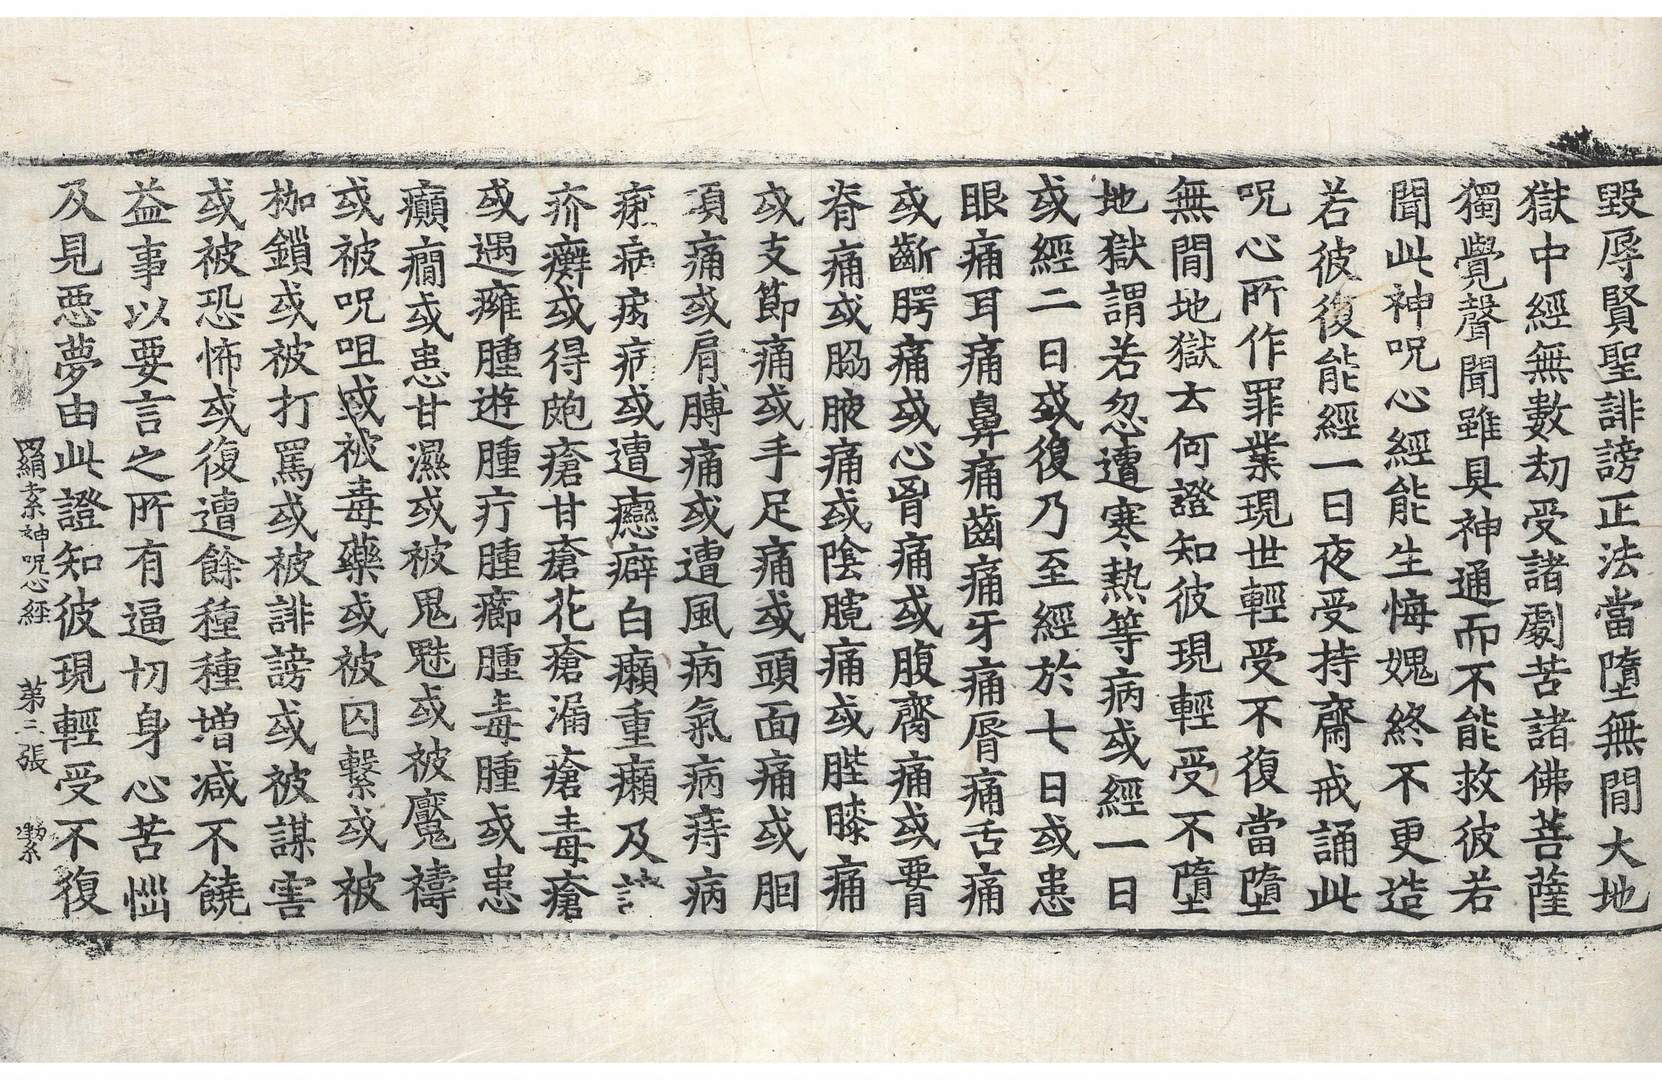 毀辱賢聖誹謗正法當墮無間大地
獄中經無數劫受諸劇苦諸佛菩薩
獨覺聲聞雖具神通而不能救彼若
聞此神呪心經能生悔媿終不更造
若彼復能經一日夜受持齋戒誦此
呪心所作罪業現世輕受不復當墮
無間地獄去何證知彼現輕受不墮
地獄謂若忽遭寒熱等病或經一日
或經二日或復乃至經於七日或患
眼痛耳痛鼻痛齒痛牙痛脣痛舌痛
或齗腭痛或心胷痛或腹齎痛或𦝫
脊痛或脇腋痛或陰髖痛或髀膝痛
或支節痛或手足痛或頭面痛或胭
項痛或肩膊痛或遭風病氣病痔病
痢病病或遭癋癖白癩重癩及
疥癬或得皰瘡甘瘡花瘡漏瘡毒瘡
或遇癰腫遊腫疔腫癤腫毒腫或患
癲癇或患甘濕或被鬼魅或被魘禱
或被呪咀或被毒藥或被囚繫或被
枷鎖或被打罵或被誹謗或被謀害
或被恐怖或復遭餘種種增減不饒
益事以要言之所有逼切身心苦惱
及見惡夢由此證知彼現輕受不復
羂索神呪心經 第三張